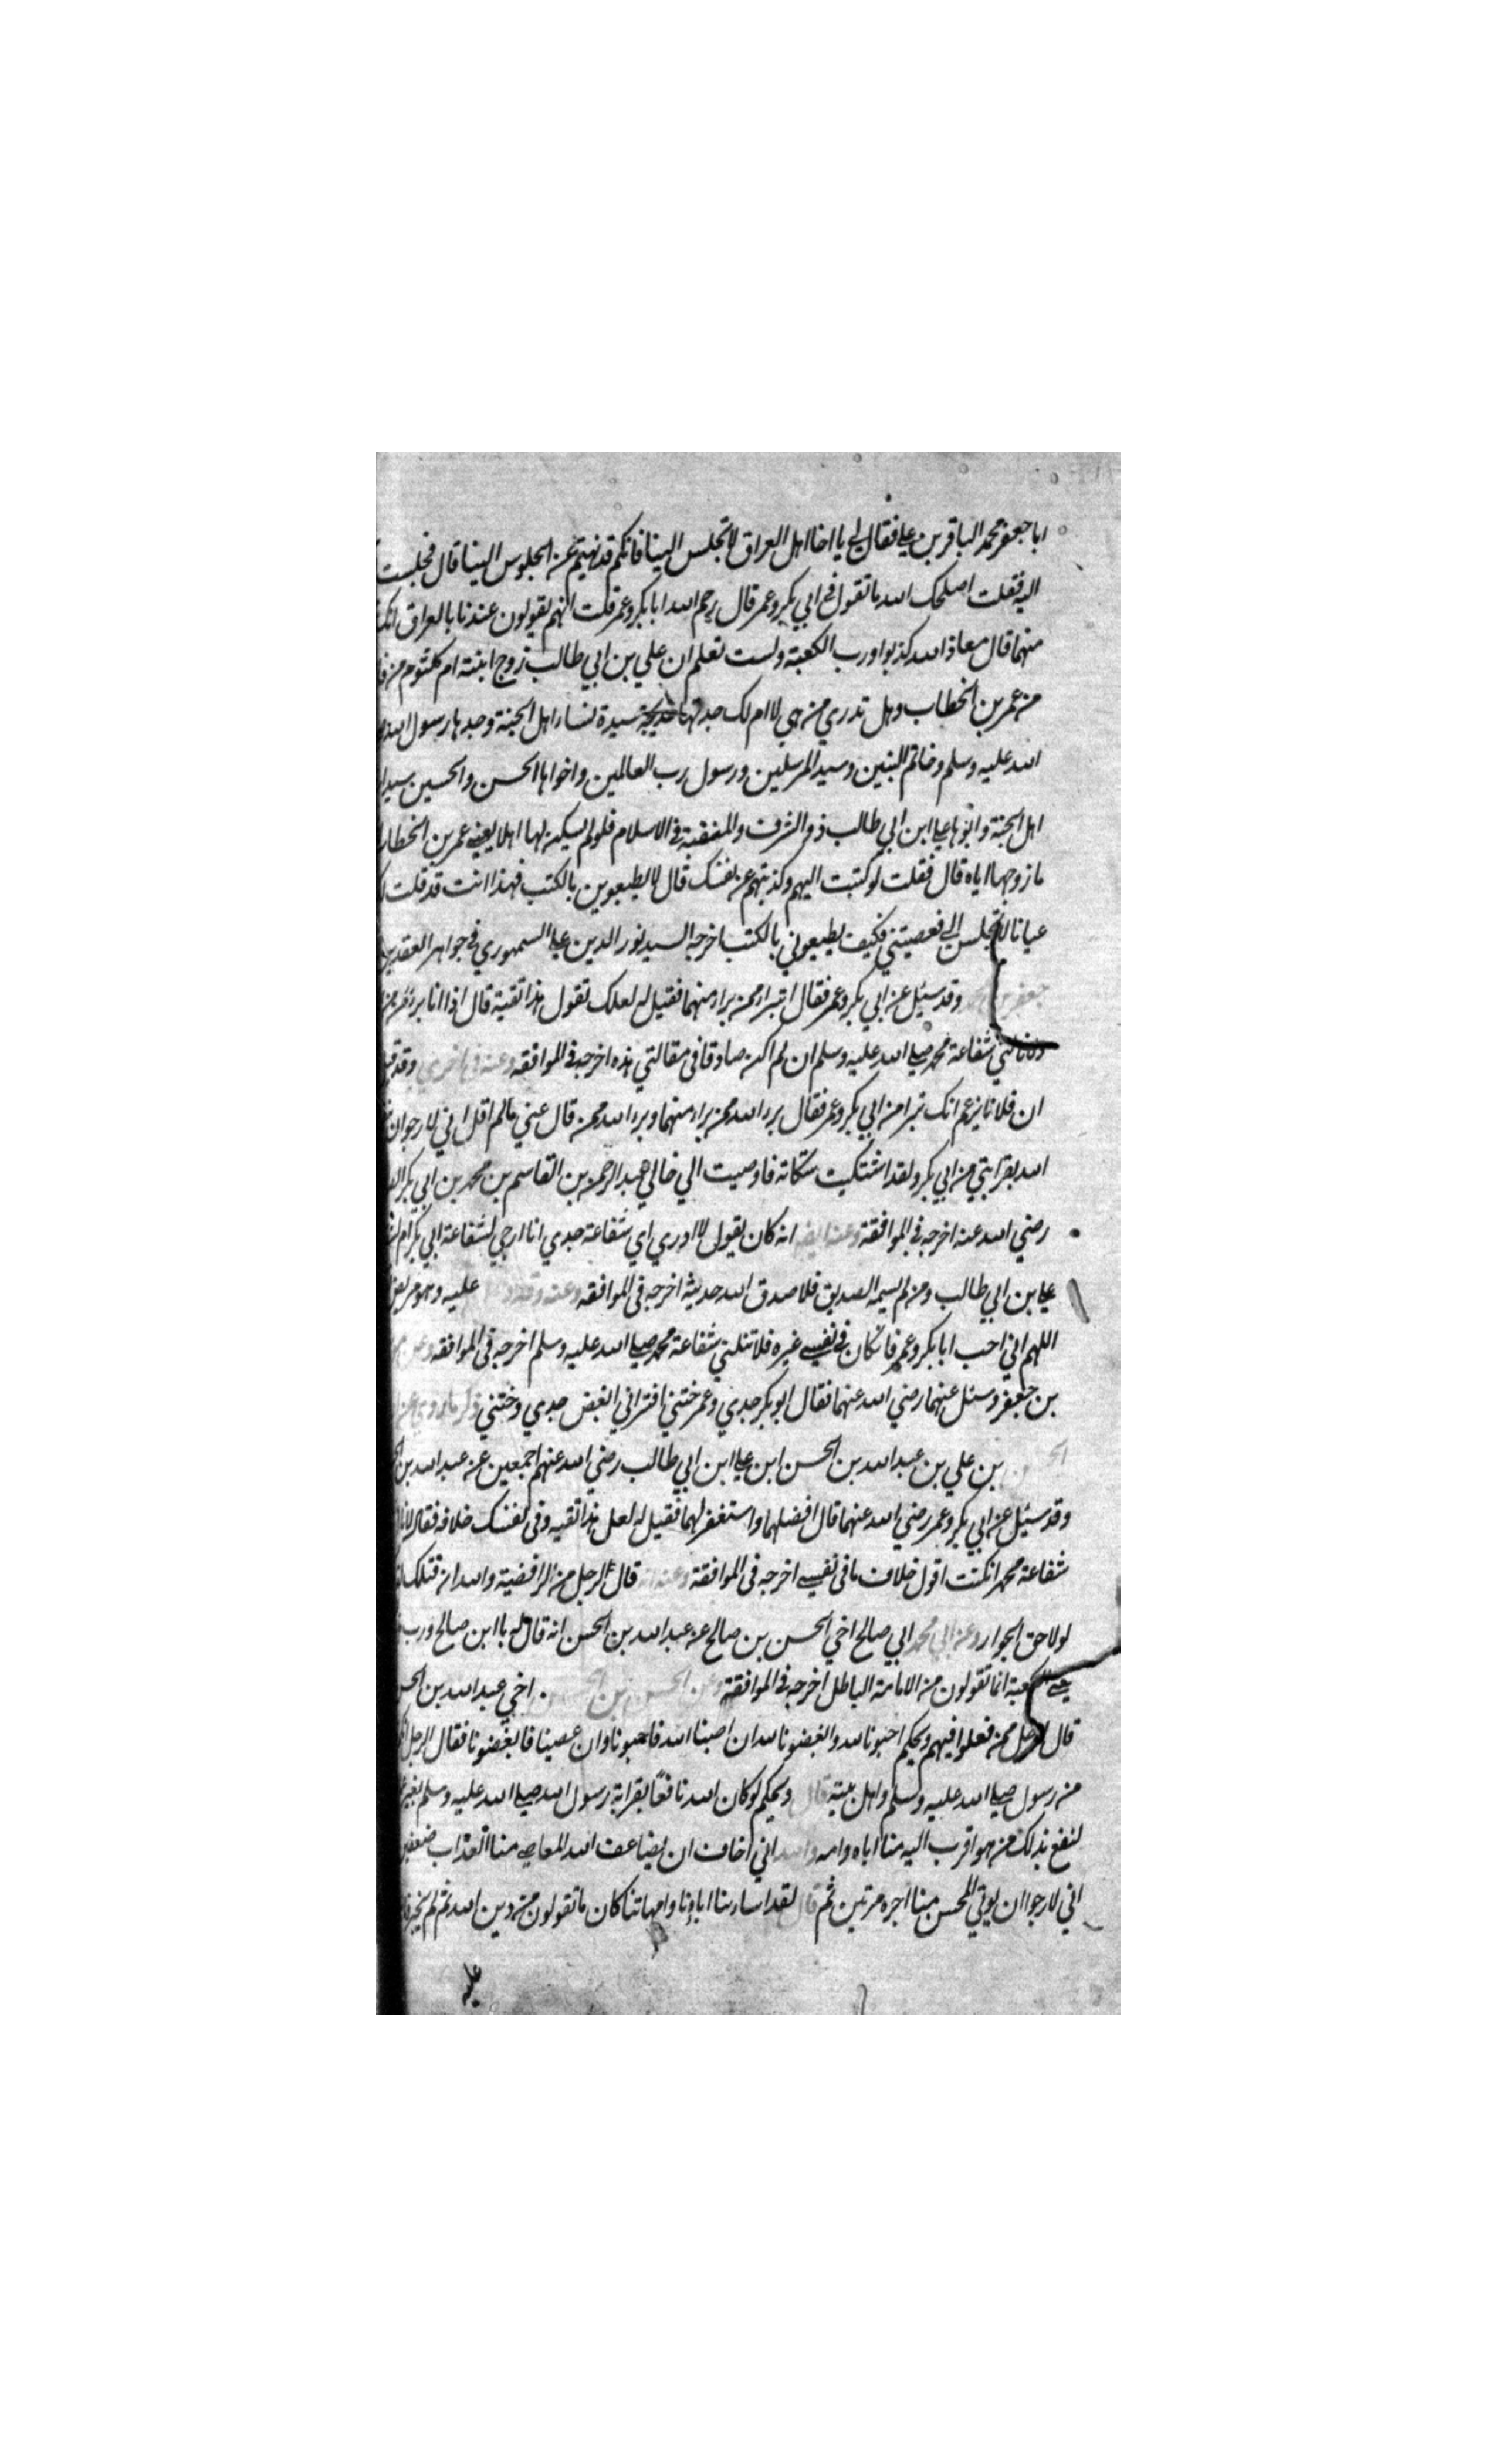 ابا جعفر محمد الباقر بن علي فقال لي يا اخا اهل العراق لا تجلس الينا فانكم قد نهيتم عن الجلوس الينا قال فجلست
اليه فقلت اصلحك الله ما تقول في ابي بكر وعمر قال رحم الله ابا بكر وعمر قلت انهم يقولون عندنا بالعراق انك
منهما قال معاذ الله كذبوا ورب الكعبة ولست تعلم ان علي بن ابي طالب زوج ابنته ام كلثوم من
من عمر بن الخطاب وهل تدري من هي لا ام لك جدتها خديجة سيدة نساء اهل الجنة وجدها رسول الله
الله عليه وسلم وخاتم النبين وسيد المرسلين ورسول رب العالمين واخواها الحسن والحسين سيدا
اهل الجنة وابوها علي ابن ابي طالب ذو الشرف والمنقبة في الاسلام فلو لم يكن لها اهلا يعني عمر بن الخطاب
ما زوجها اياه قال فقلت لو كتبت اليهم وكذبتهم عن نفسك قال لا يطيعوين بالكتب فهذا انت قد قلت
عيانا لا تجلس الي فعصيتني فكيف يطيعوني بالكتب اخرجه السيد نور الدين علي السمهوري في جواهر العقدين
جعفر بن محمد وقد سئل عن ابي بكر وعمر فقال اتبراء ممن براء منهما فقيل له لعلك تقول هذا تقية قال اذا انا برئ من
ولا نالتني شفاعة محمد صلي الله عليه وسلم ان لم اكن صادقا في مقالتي هذه اخرجه في الموافقه وعنه في اخري وقد
ان فلانا يزعم انك تبرا من ابي بكر وعمر فقال برء الله ممن براء منهما وبرء الله ممن قال عني مالم اقل اني لارجو ان
الله بقرابتي من ابي بكر ولقد اشتكيت شكاته فاوصيت الي خالي عبد الرحمن بن القاسم بن محمد بن ابي بكر
رضي الله عنه اخرجه في الموافقة وعنه ايضا انه كان يقول لا ادري اي شفاعة جدي انا ارجي لشفاعة ابي بكر ام
علي بن ابي طالب ومن لم يسمه الصديق فلا صدق الله حديثه اخرجه في الموافقه وعنه وقد عليه وهو مريض
اللهم اني احب ابا بكر وعمر فانكان في نفسي غيره فلا تنلني شفاعة محمد صلي الله عليه وسلم اخرجه في الموافقه
بن جعفر وسئل عنهما رضي الله عنهما فقال ابو بكر جدي وعمر ختني افتراني ابغض جدي وختني ذكر ما روي عن
بن علي بن عبد الله بن الحسن ابن علي ابن ابي طالب رضي الله عنهم اجمعين عن عبد الله بن
وقد سئل عن ابي بكر وعمر رضي الله عنهما قال افضلهما واستغفر لهما فقيل له لعل هذا تقيه وفي نفسك خلافه فقال
شفاعة محمد انكنت اقول خلاف ما في نفسي اخرجه في الموافقة وعنه انه قال لرجل من الرافضية والله ان قتلك
لولا حق الجوار وعن ابي محمد ابي صالح اخي الحسن بن صالح عن عبد الله بن الحسن انه قال له يا ابن صالح ورب
الكعبة انما تقولون من الامامة الباطل اخرجه في الموافقة وعن الحسن بن الحسن اخي عبد الله بن
قال لرجل ممن فعلوا فيهم ويحكم احبونا لله وابغضونا لله ان اصبنا الله فاحبونا وان عصينا فابغضونا فقال الرجل
من رسول صلي الله عليه وسلم واهل بيته قال ويحكم لو كان الله نافعا بقرابة رسول الله صلي الله عليه وسلم بغير
لنفع بذلك من هو اقرب اليه منا اباه وامه والله اني اخاف ان يضاعف الله للعاصي منا العذاب ضعفين
اني لارجو ان يوتي المحسن مينا اجره مرتين ثم قال لقد اساء بنا اباؤنا وامهاتنا كان ما تقولون من دين الله ثم لم
عليه